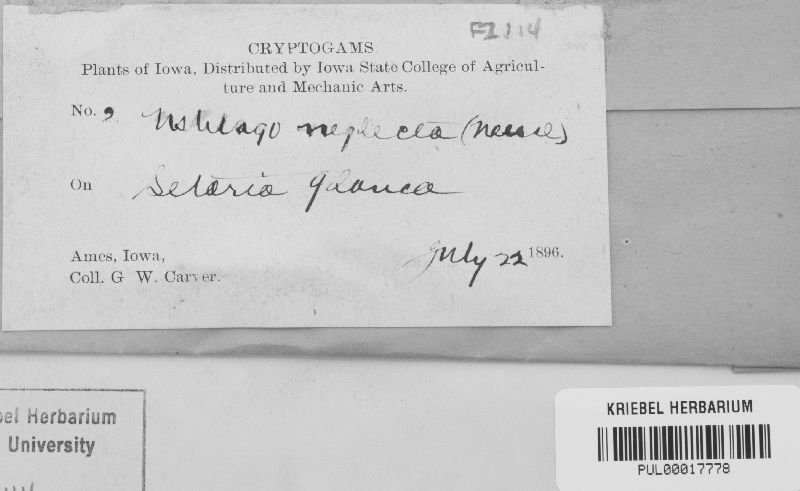 F2114
CRYPTOGAMS
Plants of Iowa, Distributed by Iowa State College of Agricul-
ture and Mechanic Arts.
No. 9. Ustilago neglecta (Neisse)
On Setaria glauca
Ames, Iowa,
July 22 1896.
Coll. G W. Carver.
bel Herbarium
University
KRIEBEL HERBARIUM
PUL00017778